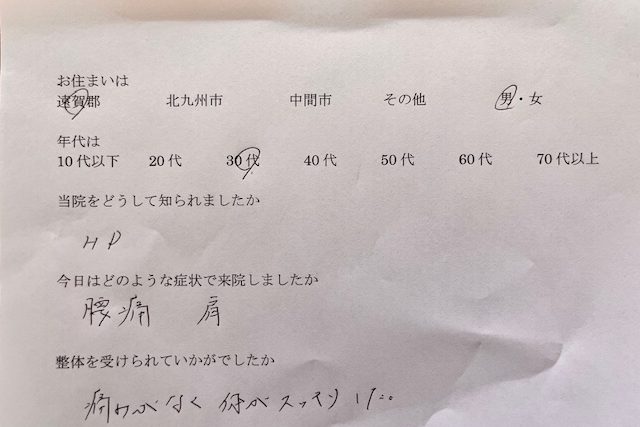 お住まいは
遠賀郡 北九州市 中間市 その他 男・女
年代は
10代以下 20代 30代 40代 50代 60代 70代以上
当院をどうして知られましたか
HP
今日はどのような症状で来院しましたか
腰痛 肩
整体を受けられていかがでしたか
痛みがなく 体がスッキリした。